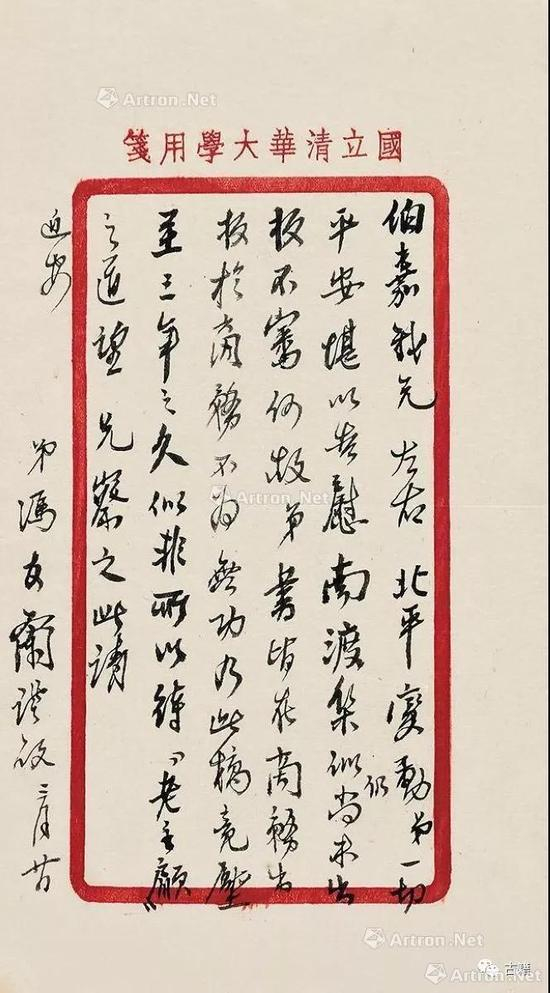 國立清華大學用箋
伯嘉我兄 左右 北平變動弟一切
平安堪以告慰南渡集似仍尚未出
板不審何故弟書皆在商務出
板於商務不為無功乃此稿竟壓
至三年之久似非所以待「老主顧」
之道望 兄察之此請
近安
弟馮友蘭謹啟
Artron.Net
Artron.Net
Artron.Net
Artron.Net